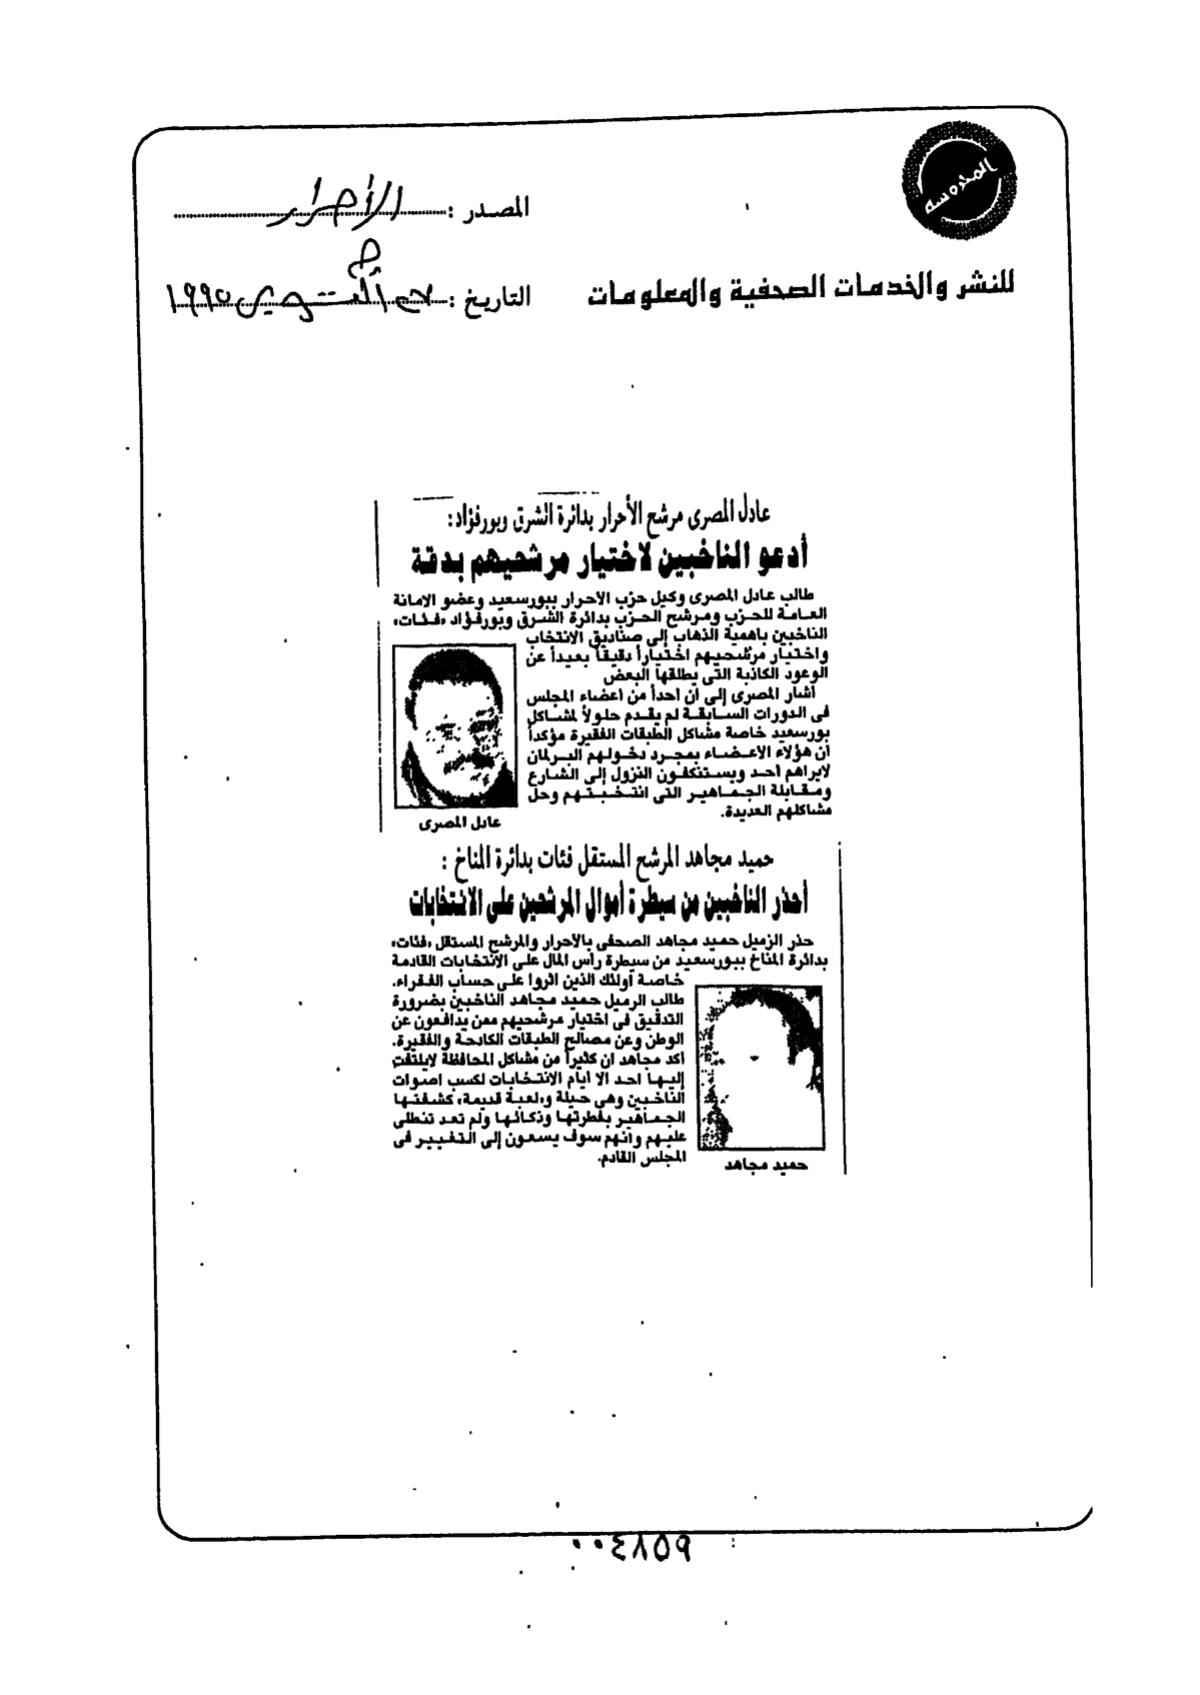 المدوسه
للنشر والخدمات الصحفية والمعلومات
المصدر : الأحرار
التاريخ : ١٩٩٥
عادل المصرى مرشح الأحرار بدائرة الشرق وبورفؤاد:
أدعو الناخبين لاختيار مرشحيهم بدقة
طالب عادل المصرى وكيل حزب الاحرار ببورسعيد وعضو الامانة
العامة للحزب ومرشح الحزب بدائرة الشرق وبورفؤاد «فئات»
الناخبين باهمية الذهاب إلى صناديق الانتخاب
واختيار مرشحيهم اختياراً دقيقاً بعيداً عن
الوعود الكاذبة التى يطلقها البعض
أشار المصرى إلى أن احداً من اعضاء المجلس
فى الدورات السابقة لم يقدم حلولاً لمشاكل
بورسعيد خاصة مشاكل الطبقات الفقيرة مؤكداً
أن هؤلاء الاعضاء بمجرد دخولهم البرلمان
لايراهم أحد ويستنكفون النزول إلى الشارع
ومقابلة الجماهير التى انتخبتهم وحل
مشاكلهم العديدة.
عادل المصرى
حميد مجاهد المرشح المستقل فئات بدائرة المناخ :
أحذر الناخبين من سيطرة أموال المرشحين على الانتخابات
حذر الزميل حميد مجاهد الصحفى بالأحرار والمرشح المستقل «فئات»
بدائرة المناخ ببورسعيد من سيطرة رأس المال على الانتخابات القادمة
خاصة اولئك الذين اثروا على حساب الفقراء.
طالب الزميل حميد مجاهد الناخبين بضرورة
التدقيق فى اختيار مرشحيهم ممن يدافعون عن
الوطن وعن مصالح الطبقات الكادحة والفقيرة.
أكد مجاهد ان كثيراً من مشاكل المحافظة لايلتفت
إليها احد الا ايام الانتخابات لكسب اصوات
الناخبين وهى حيلة و«لعبة قديمة» كشفتها
الجماهير بفطرتها وذكائها ولم تعد تنطلى
عليهم وانهم سوف يسعون إلى التغيير فى
المجلس القادم.
حميد مجاهد
٠٠٤٨٥٩